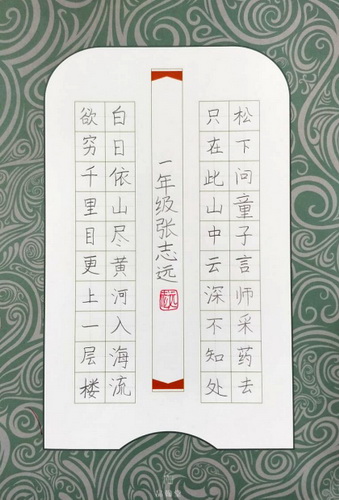 松下问童子言师采药去
只在此山中云深不知处
一年级张志远
白日依山尽黄河入海流
欲穷千里目更上一层楼